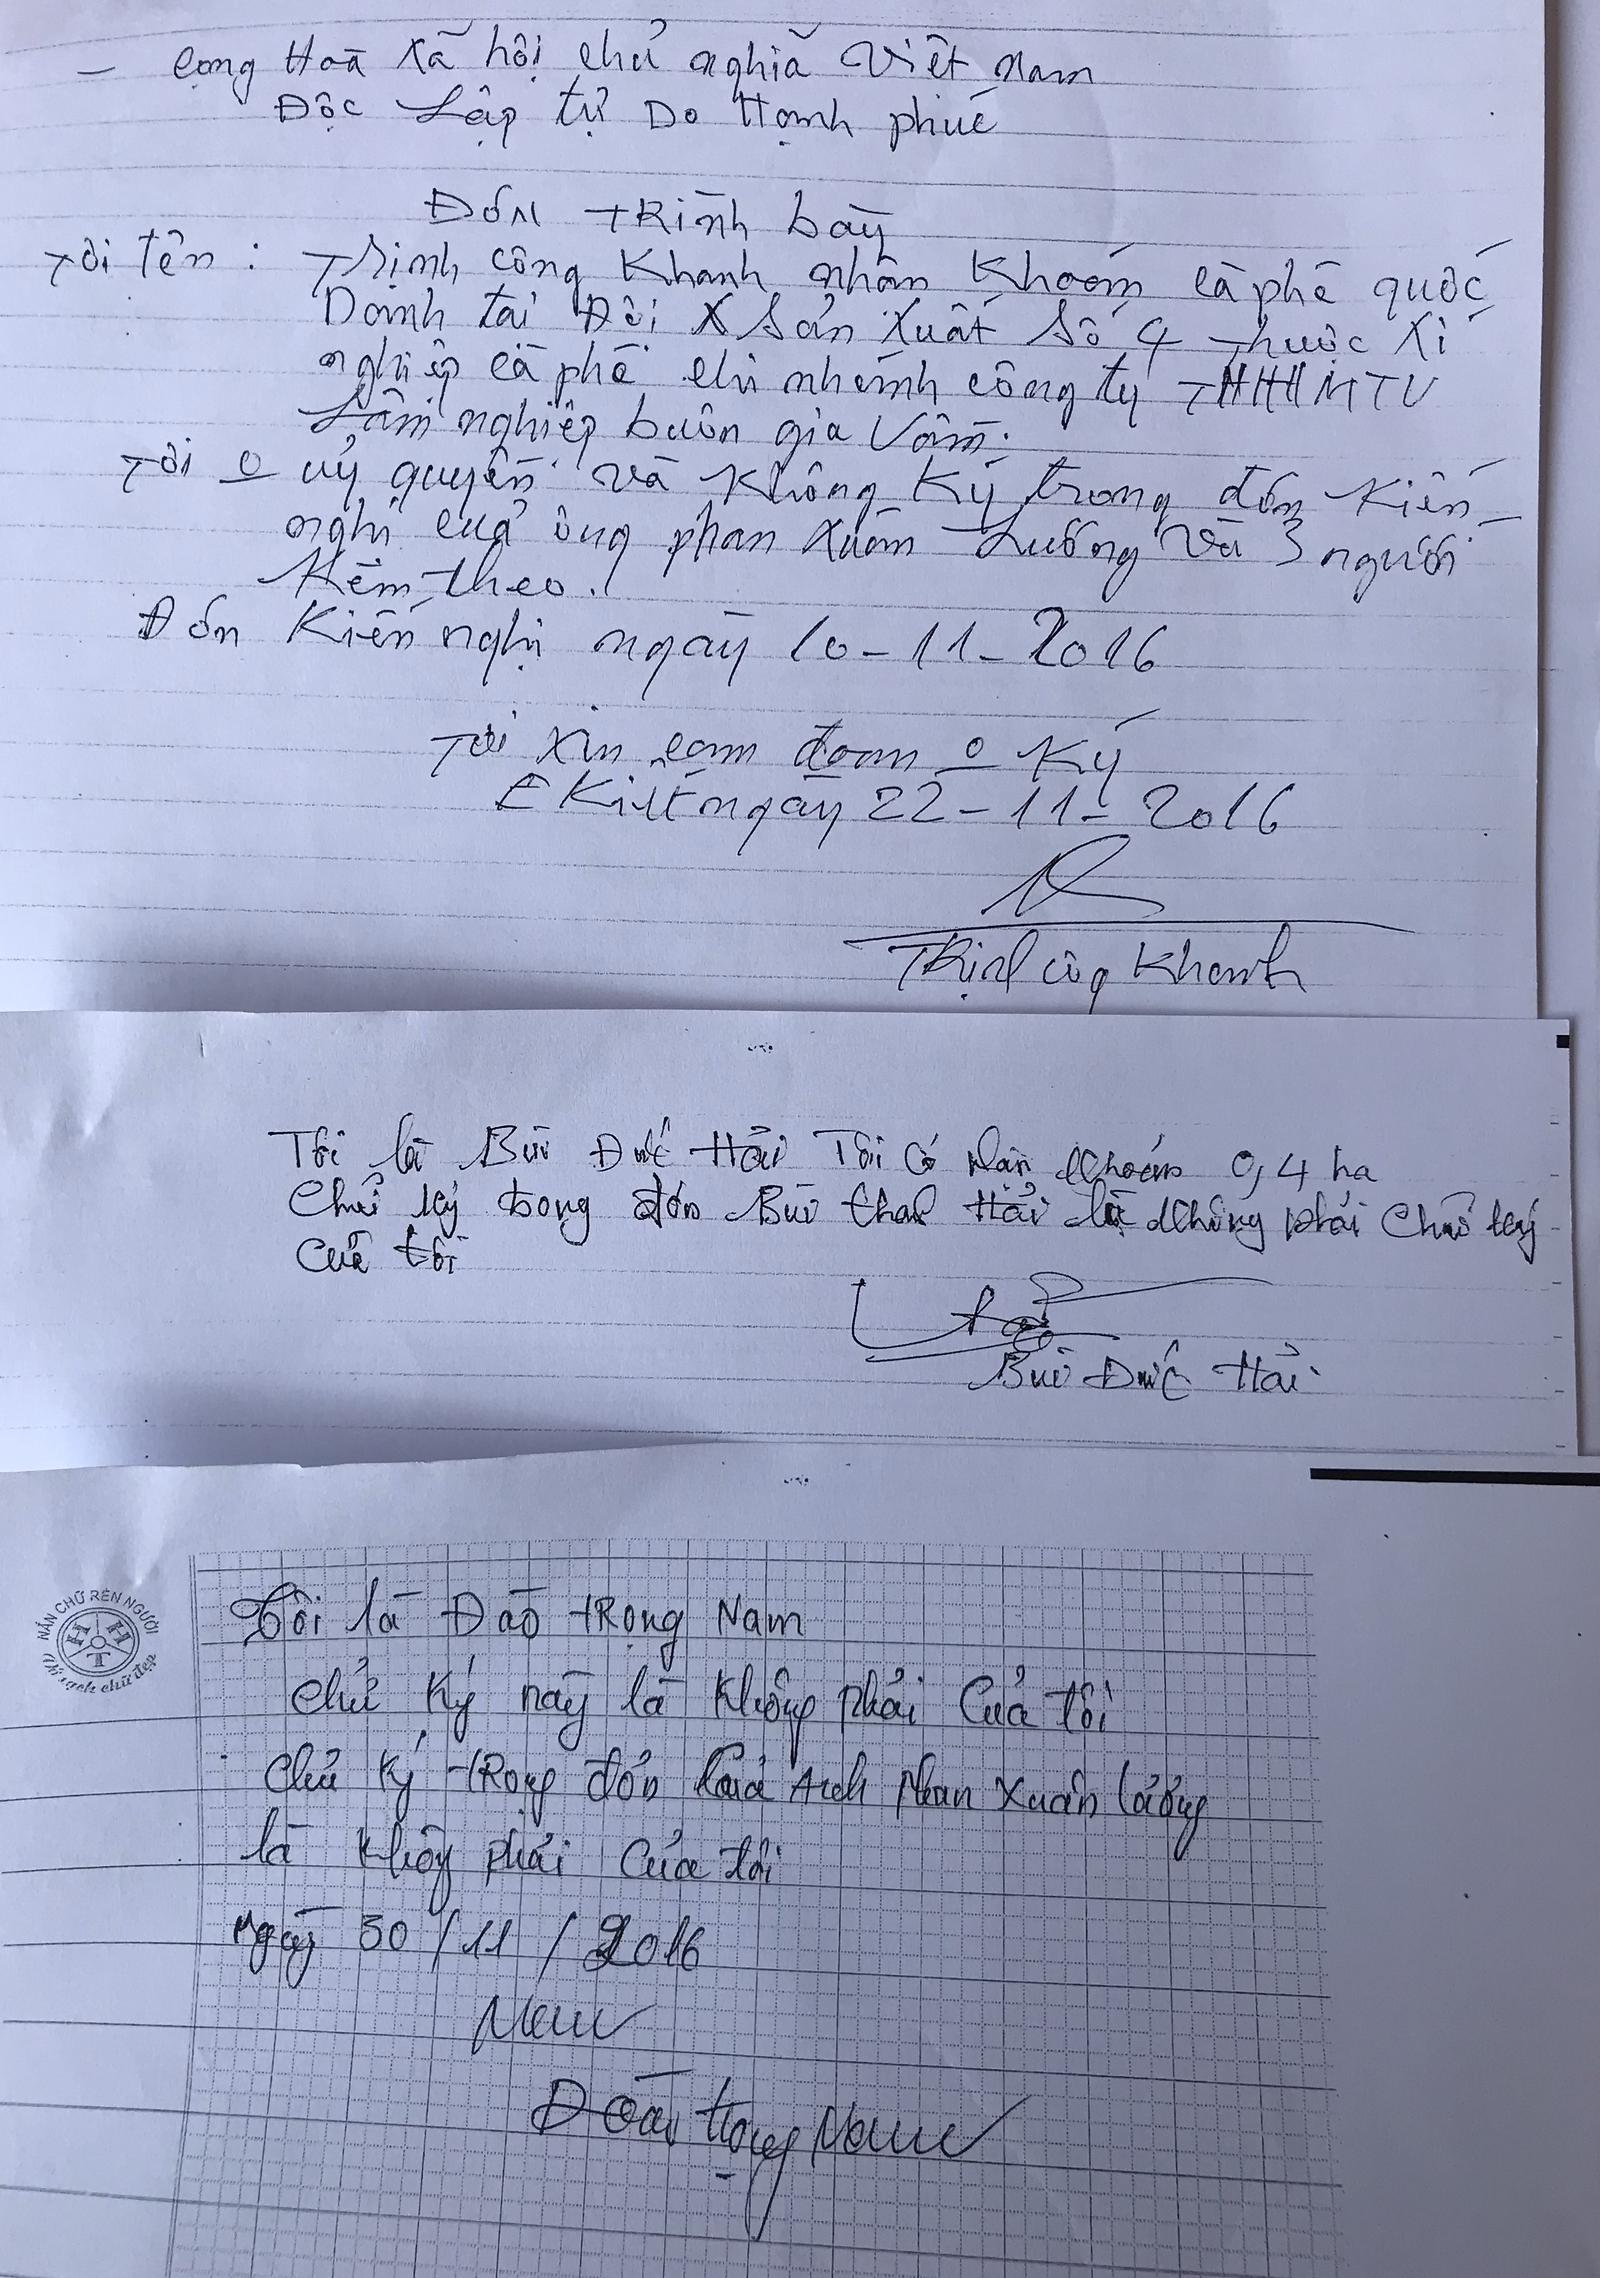 - Cộng Hoà Xã hội chủ nghĩa Việt Nam
Độc Lập tự Do Hạnh phúc
Đơn trình bày
Tôi tên : Trịnh công Khanh nhân Khoán cà phê quốc
Doanh tại Đội X Sản Xuất Số 4 thuộc Xí
nghiệp cà phê chi nhánh công ty TNHHMTV
Lâm nghiệp buôn gia Vầm.
Tôi 0 uỷ quyền và Không Ký trong đơn Kiến
nghị cuả ông phan Xuân Lưỡng Và 3 người
Kèm theo.
Đơn Kiến nghị ngày 10-11-2016
Tôi xin cam đoan 0 Ký
EKiết ngày 22-11-2016
Trịnh công Khanh
Tôi là Bùi Đức Hải Tôi có nhận Khoán 0,4 ha
Chữ ký trong đơn Bùi thanh Hải là không phải Chữ ký
Của tôi
Hải
Bùi Đức Hải
NẮN CHỮ RÈN NGƯỜI
HHT
Vở sạch chữ đẹp
Tôi là Đào trọng Nam
chữ Ký này là không phải Của tôi
Chữ Ký trong đơn của Anh phan Xuân lưỡng
là không phải Của tôi
Ngày 30/11/2016
Nam
Đào trọng Nam